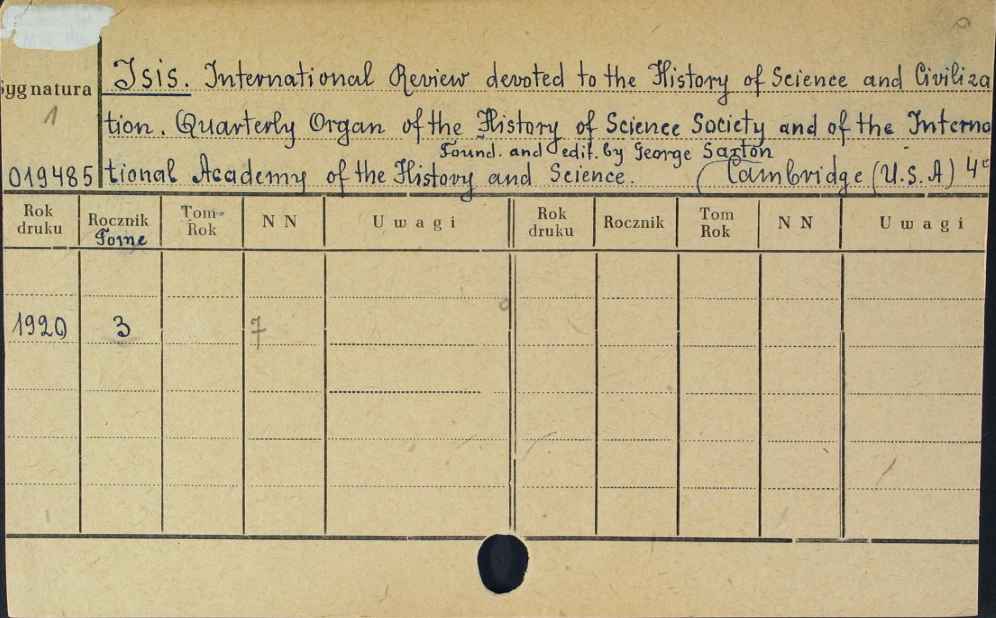 Isis. International Review devoted to the History of Science and Civiliza
Sygnatura
1
tion. Quarterly Organ of the History of Science Society and of the Interna
Found. and edit. by George Sarton
019485 tional Academy of the History and Science. (Cambridge (U.S.A) 4°
Rok druku Rocznik Tom-Rok NN Uwagi Rok druku Rocznik Tom Rok NN Uwagi
Tome
1920 3 7